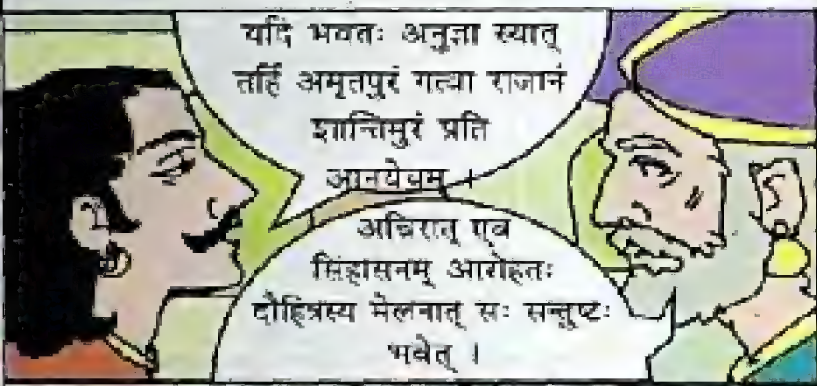 यदि भवतः अनुज्ञा स्यात्
तर्हि अमृतपुरं गत्वा राजानं
शान्तिमुरं प्रति
आनयेयम् ।
अचिरात् एव
सिंहासनम् आरोहतः
दौहित्रस्य मेलनात् सः सन्तुष्टः
भवेत् ।